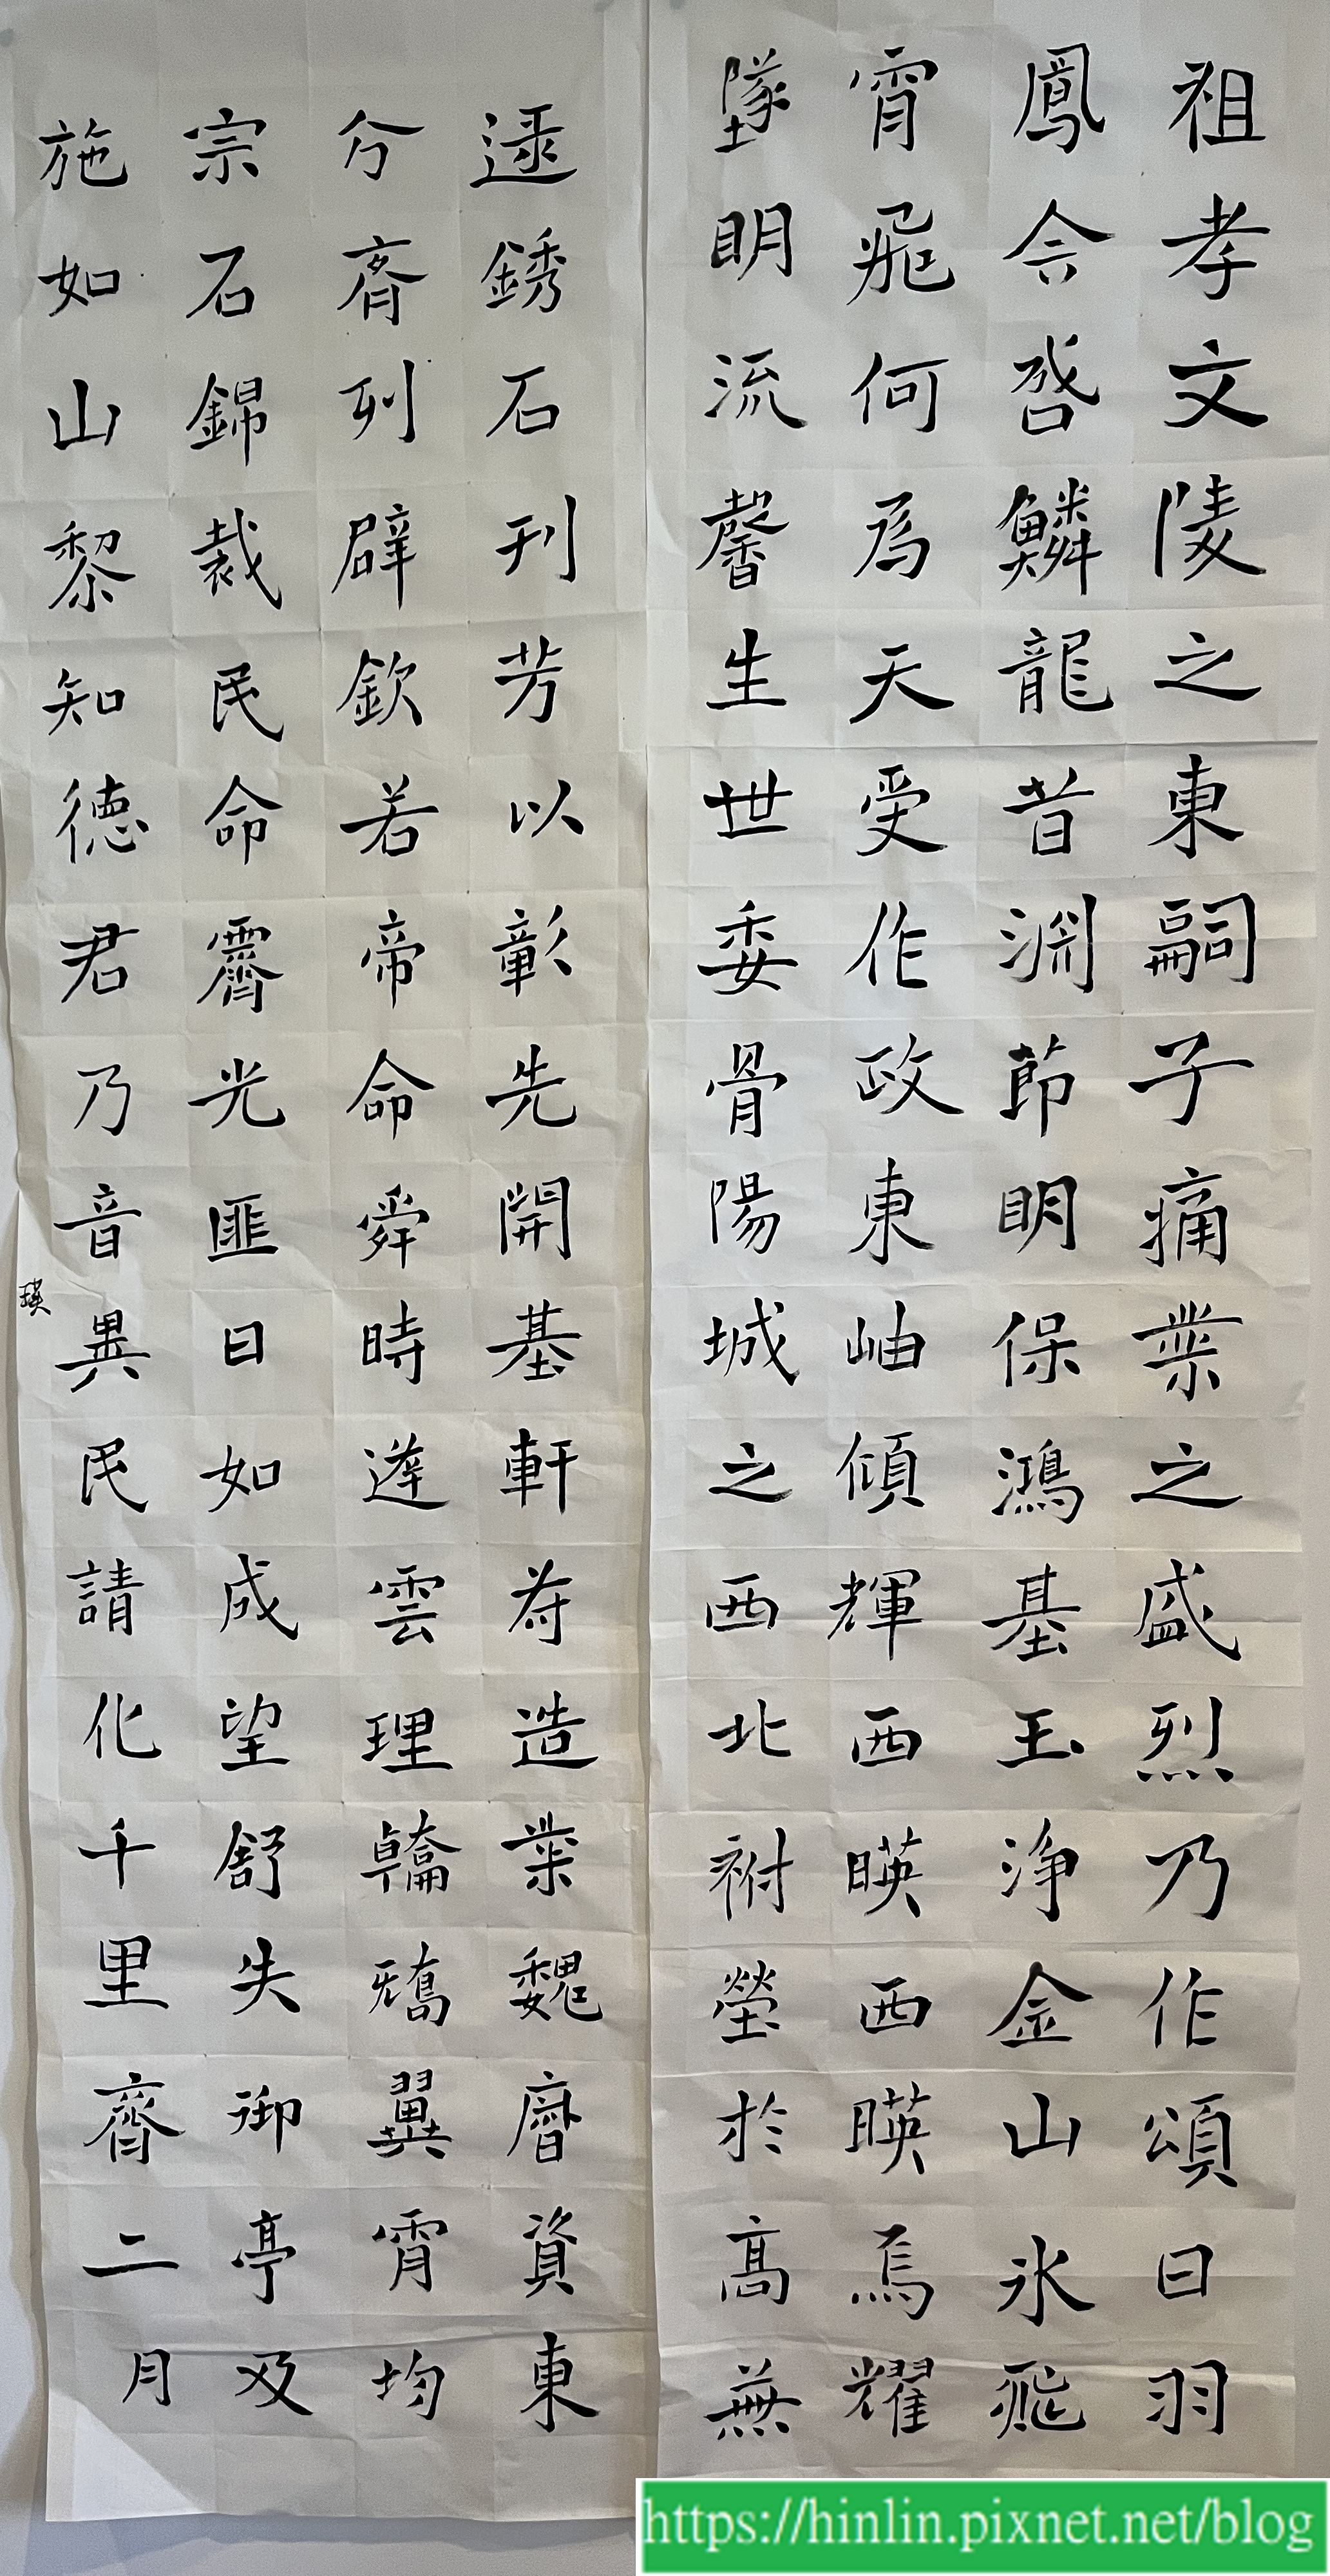 祖孝文陵之東嗣子痛業之盛烈乃作頌曰羽
鳳令啓鱗龍昔淵節明保鴻基玉淨金山氷飛
宵飛何為天受作政東岫傾輝西暎西暎焉耀
墜明流馨生世委骨陽城之西北祔塋於高蕪
銹石刊芳以彰先開基軒符造業魏曆資東
分齊列辟欽若帝命舜時遵雲理翰矯翼宵均
宗石錦裁民命霽光匪日如成望舒失御亭及
施如山黎知德君乃音異民請化千里齊二月
瑛
https://hinlin.pixnet.net/blog